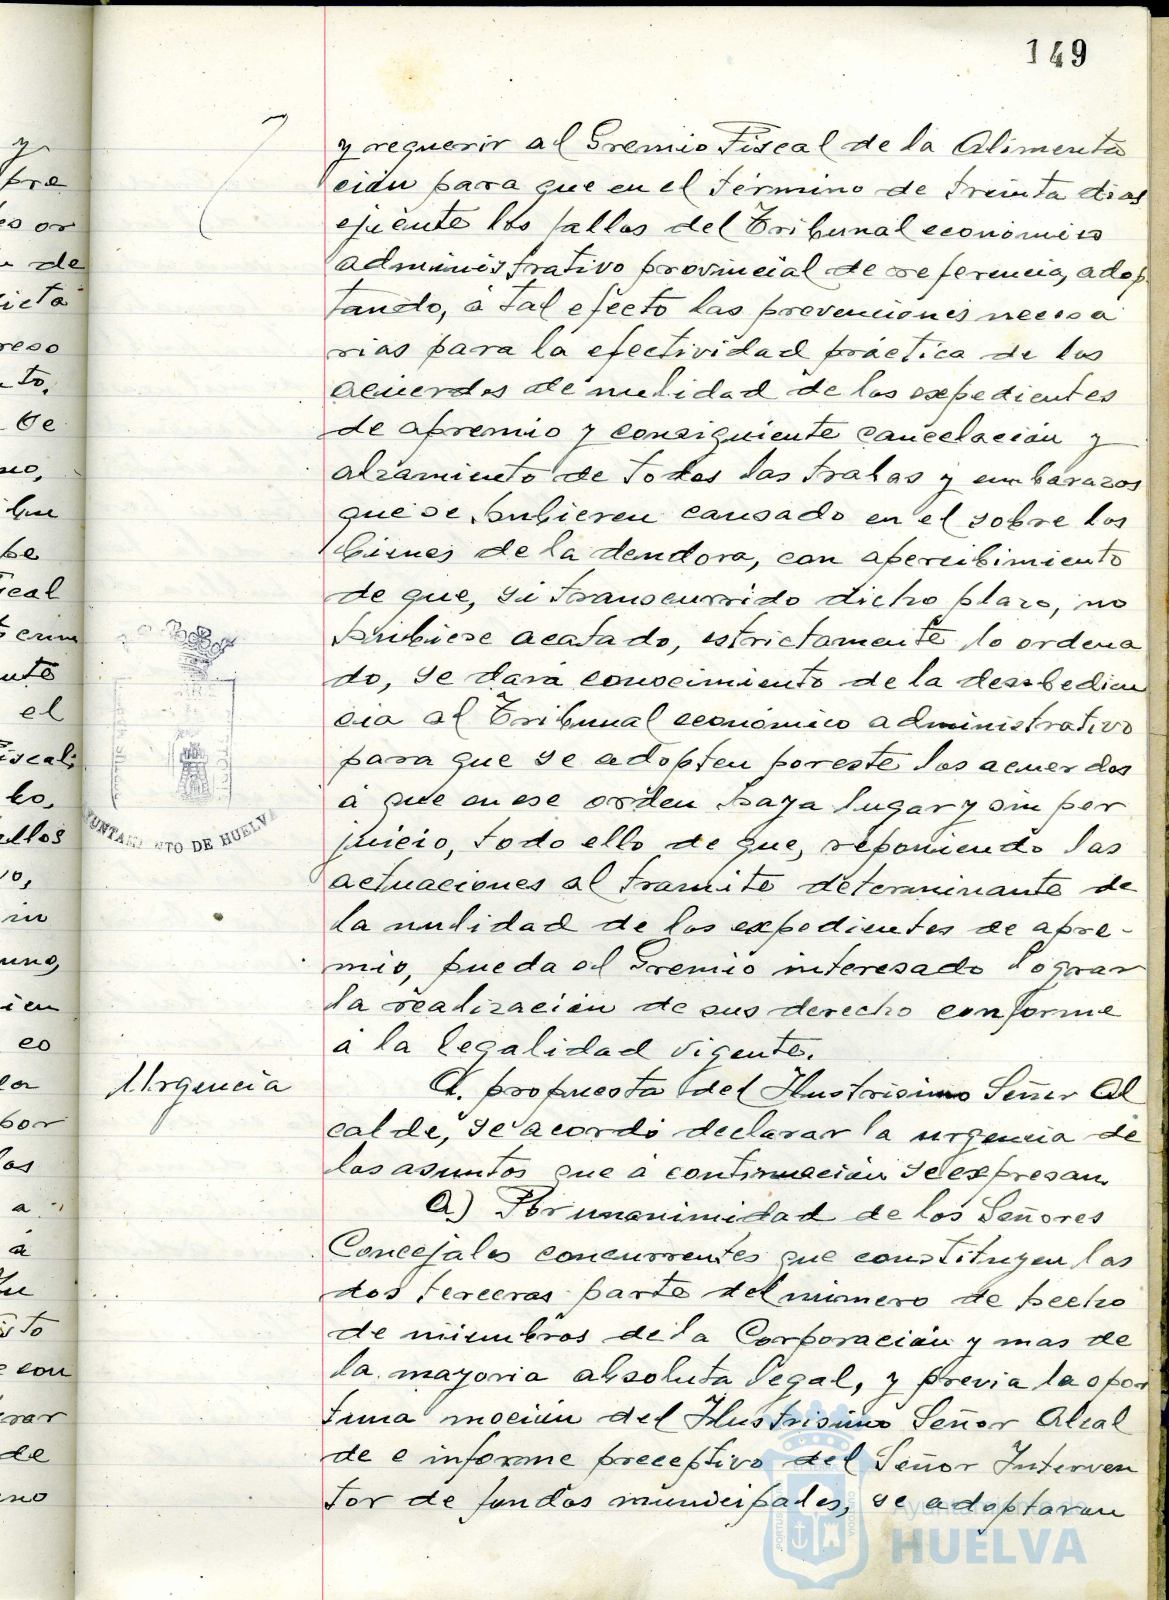 149
y requerir al Gremio Fiscal de la Alimenta
ción para que en el término de treinta dias
ejecute los fallos del Tribunal económico
administrativo provincial de referencia, adop
tando, á tal efecto las prevenciones necesa
rias para la efectividad práctica de los
acuerdos de nulidad de los expedientes
de apremio y consiguiente cancelación y
alzamiento de todas las trabas y embarazos
que se hubieren causado en el sobre los
bienes de la deudora, con apercibimiento
de que, si transcurrido dicho plazo, no
hubiese acatado, estrictamente lo ordena
do, se dará conocimiento de la desobedien
cia al Tribunal económico administrativo
para que se adopten por este los acuerdos
á que en ese orden haya lugar y sin per
juicio, todo ello de que, reponiendo las
actuaciones al tramite determinante de
la nulidad de los expedientes de apre-
mio, pueda el Gremio interesado lograr
la realización de sus derecho conforme
á la legalidad vigente.
Urgencia
A. propuesta del Ilustrisimo Señor Al
calde, se acordó declarar la urgencia de
los asuntos que á continuación se expresan.
A) Por unanimidad de los Señores
Concejales concurrentes que constituyen las
dos terceras parte del número de hecho
de miembros de la Corporación y mas de
la mayoria absoluta legal, y previa la opor
tuna moción del Ilustrisimo Señor Alcal
de e informe preceptivo del Señor Interven
tor de fondos municipales, se adoptaron
AYUNTAMIENTO DE HUELVA
Ayuntamiento de
HUELVA
y
pre
es or
de
icta
reso
to.
se
no,
pe
el
lo,
llos
vo,
in
uno,
ien
eo
por
las
a
á
con
rar
de
no